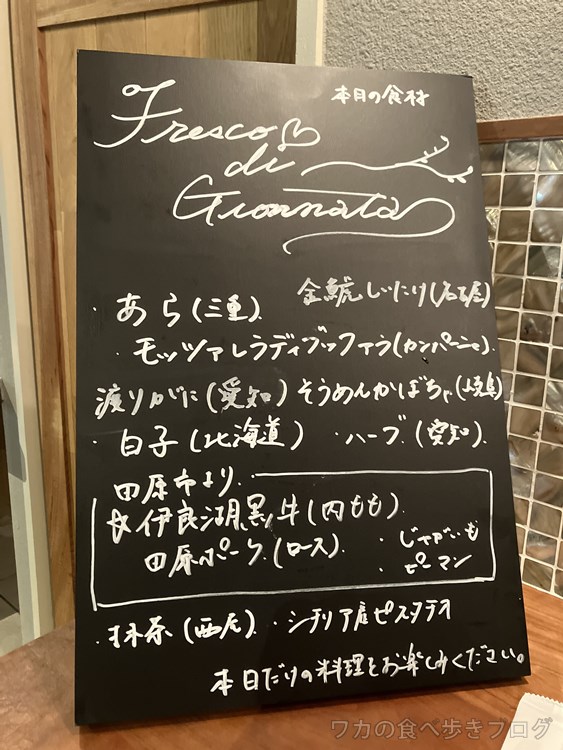 本日の食材
Fresco
di
Giornata
金鯱しいたけ(名古屋)
・あら(三重)
・モッツァレラディブッファラ(カンパーニャ)
渡りがに(愛知) そうめんかぼちゃ
・白子(北海道) ・ハーブ(愛知)
田原市より
伊良湖黒牛(内もも)
田原ポーク(ロース) ・じゃがいも
・ピーマン
・抹茶(西尾) ・シチリア産ピスタチオ
本日だけの料理をお楽しみください。
ワカの食べ歩きブログ